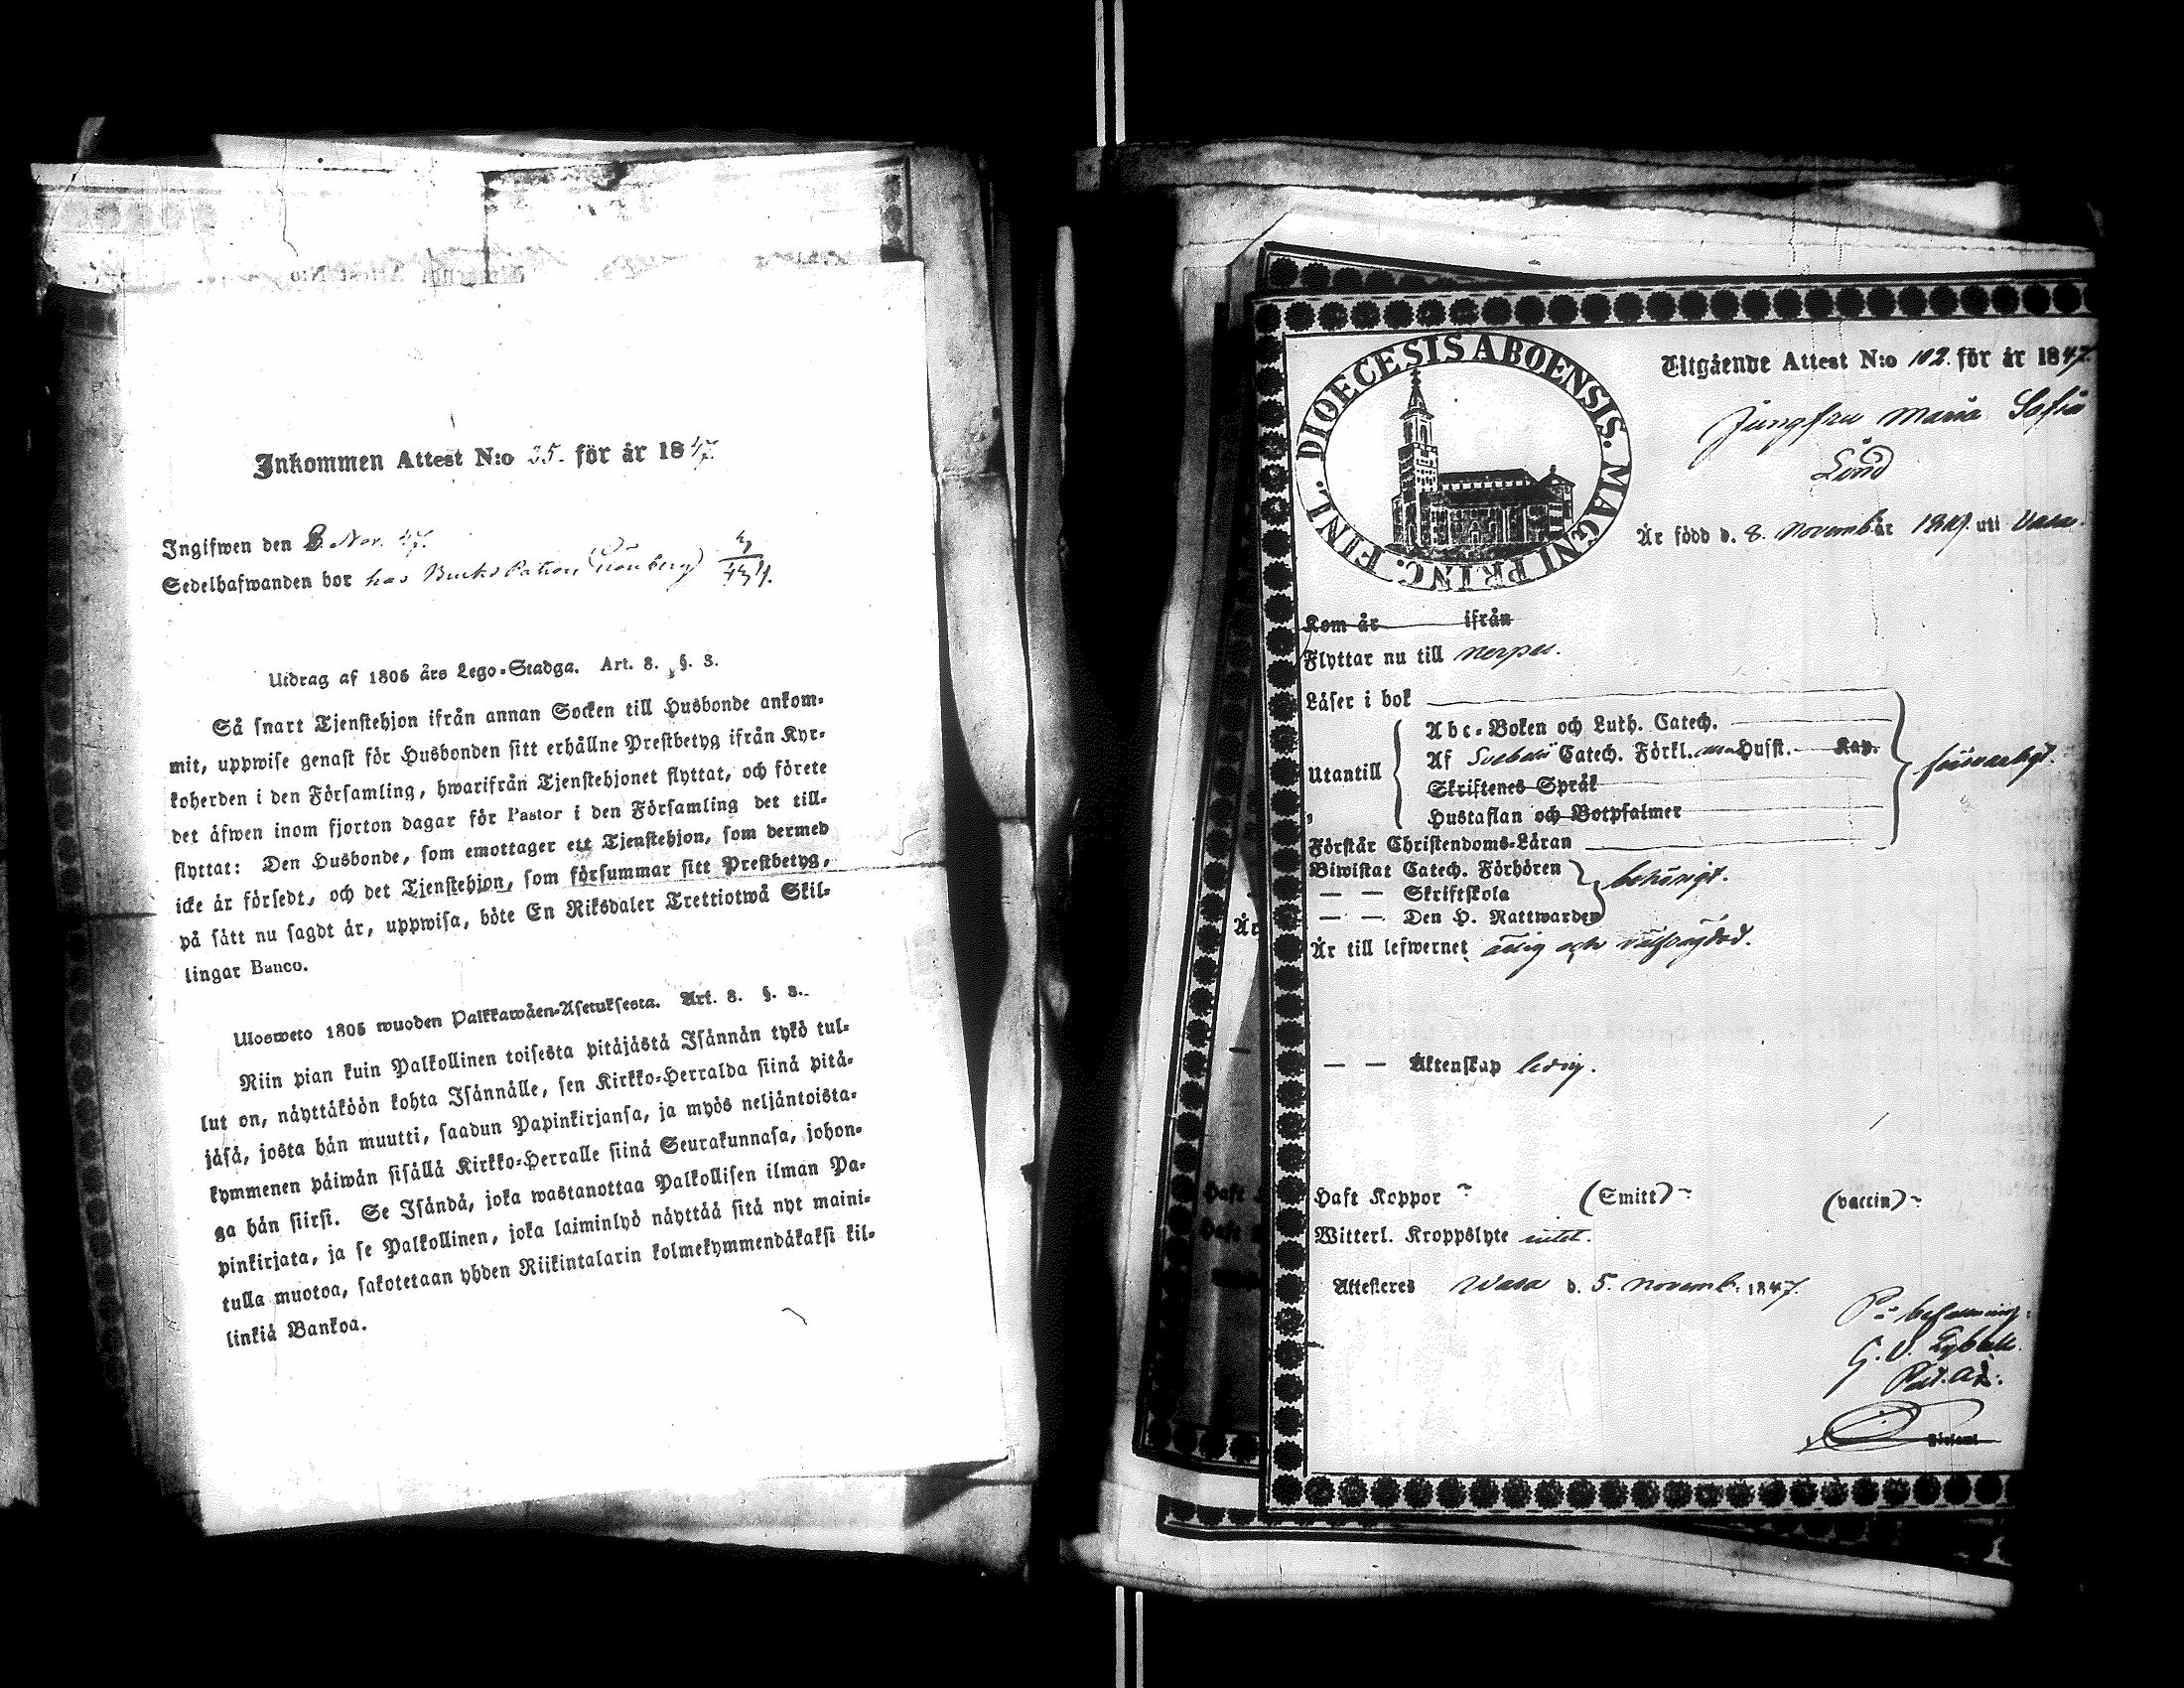 Inkommen Attest N:o 35. för år 1847.
Ingifwen den 8. Nov. 47.
Sedelhafwanden bor hos Bruks Patron
Utdrag af 1805 års Lego-Stadga. Art. 8. §. 3.
Så snart Tjenstehjon ifrån annan Socken till Husbonde ankom-
mit, uppwise genast för Husbonden sitt erhållne Prestbetyg ifrån Kyr-
koherden i den Församling, hwarifrån Tjenstehjonet flyttat, och förete
det äfwen inom fjorton dagar för Pastor i den Församling det till-
flyttat: Den Husbonde, som emottager ett Tjenstehjon, som dermed
icke är försedt, och det Tjenstehjon, som försummar sitt Prestbetyg,
på sätt nu sagdt är, uppwisa, böte En Riksdaler Trettiotwå Skil-
lingar Banco.
Ulosweto 1805 wuoden Palkkawäen-Asetuksesta. Art. 8. §. 3.
Niin pian kuin Palkollinen toisesta pitäjästä Isännän tykö tul-
lut on, näyttäköön kohta Isännälle, sen Kirkko-Herralda siinä pitä-
jäsä, josta hän muutti, saadun Papinkirjansa, ja myös neljäntoista-
kymmenen päiwän sisällä Kirkko-Herralle siinä Seurakunnasa, johon-
ga hän siirsi. Se Isändä, joka wastanottaa Palkollisen ilman Pa-
pinkirjata, ja se Palkollinen, joka laiminlyö näyttää sitä nyt maini-
tulla muotoa, sakotetaan yhden Riikintalarin kolmekymmendäkaksi kil-
linkiä Bankoa.
DIOECESIS ABOENSIS. MAGNI PRINC. FINL.
Utgående Attest N:o 102. för år 1847.
Jungfru Maria Sofia
Lind
Är född d. 8. Novemb. år uti Vasa.
Kom år ifrån
Flyttar nu till Nerpes.
Läser i bok
Abc-Boken och Luth. Catech.
Utantill Af Svebelii Catech. Förkl. Husst. Kap. försvarligt.
Skriftenes Språk
Hustaflan och Botpsalmer
Förstår Christendoms-Läran
Biwistat Catech. Förhören
— — Skriftskola behörigt.
— — Den H. Nattwarden
Är till lefwernet ärlig och välfrägdad.
— — Äktenskap ledig.
Haft Koppor ~ (Smitt) ~ (vaccin) ~
Witterl. Kroppslyte intet.
Attesteres Wasa d. 5. Novemb. 1847.
På befallning:
G. V.